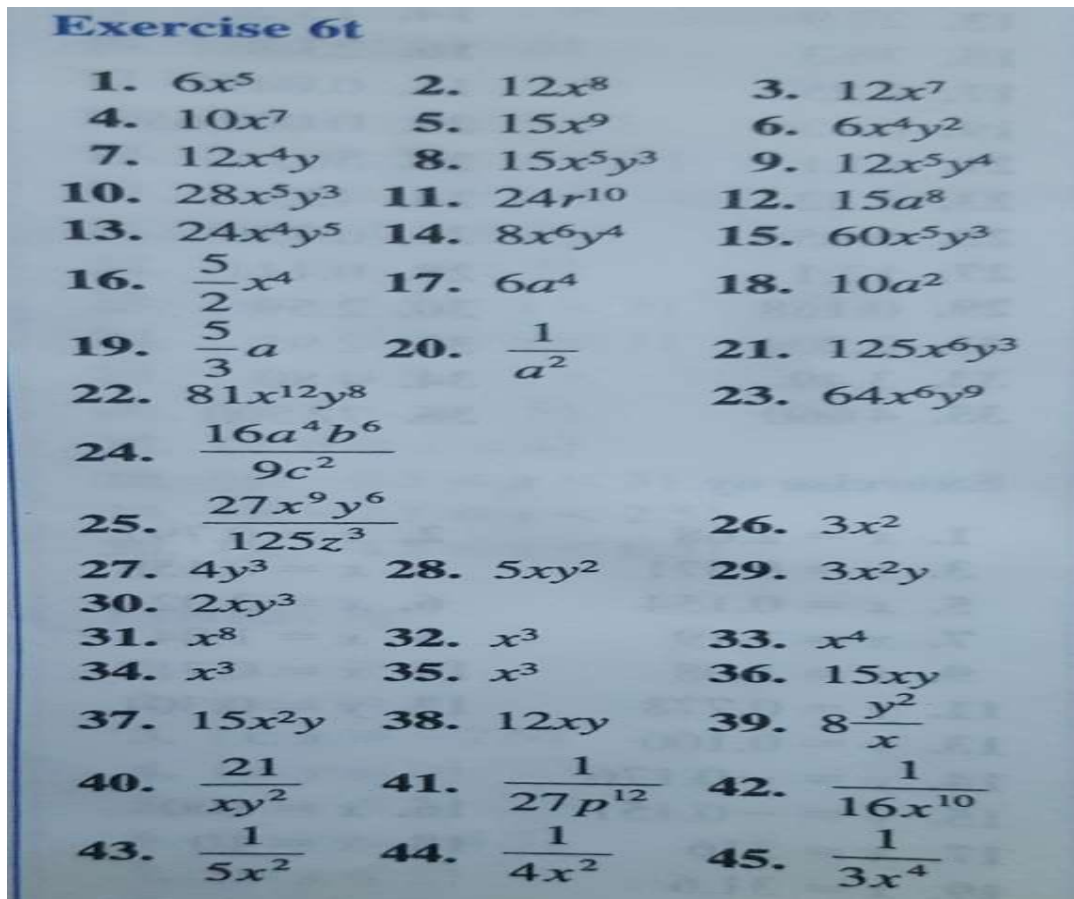 Exercise 6t
1. 6x⁵ 2. 12x⁸ 3. 12x⁷
4. 10x⁷ 5. 15x⁹ 6. 6x⁴y²
7. 12x⁴y 8. 15x⁵y³ 9. 12x⁵y⁴
10. 28x⁵y³ 11. 24r¹⁰ 12. 15a⁸
13. 24x⁴y⁵ 14. 8x⁶y⁴ 15. 60x⁵y³
16. 5/2 x⁴ 17. 6a⁴ 18. 10a²
19. 5/3 a 20. 1/a² 21. 125x⁶y³
22. 81x¹²y⁸ 23. 64x⁶y⁹
24. 16a⁴b⁶/9c²
25. 27x⁹y⁶/125z³ 26. 3x²
27. 4y³ 28. 5xy² 29. 3x²y
30. 2xy³
31. x⁸ 32. x³ 33. x⁴
34. x³ 35. x³ 36. 15xy
37. 15x²y 38. 12xy 39. 8 y²/x
40. 21/xy² 41. 1/27p¹² 42. 1/16x¹⁰
43. 1/5x² 44. 1/4x² 45. 1/3x⁴